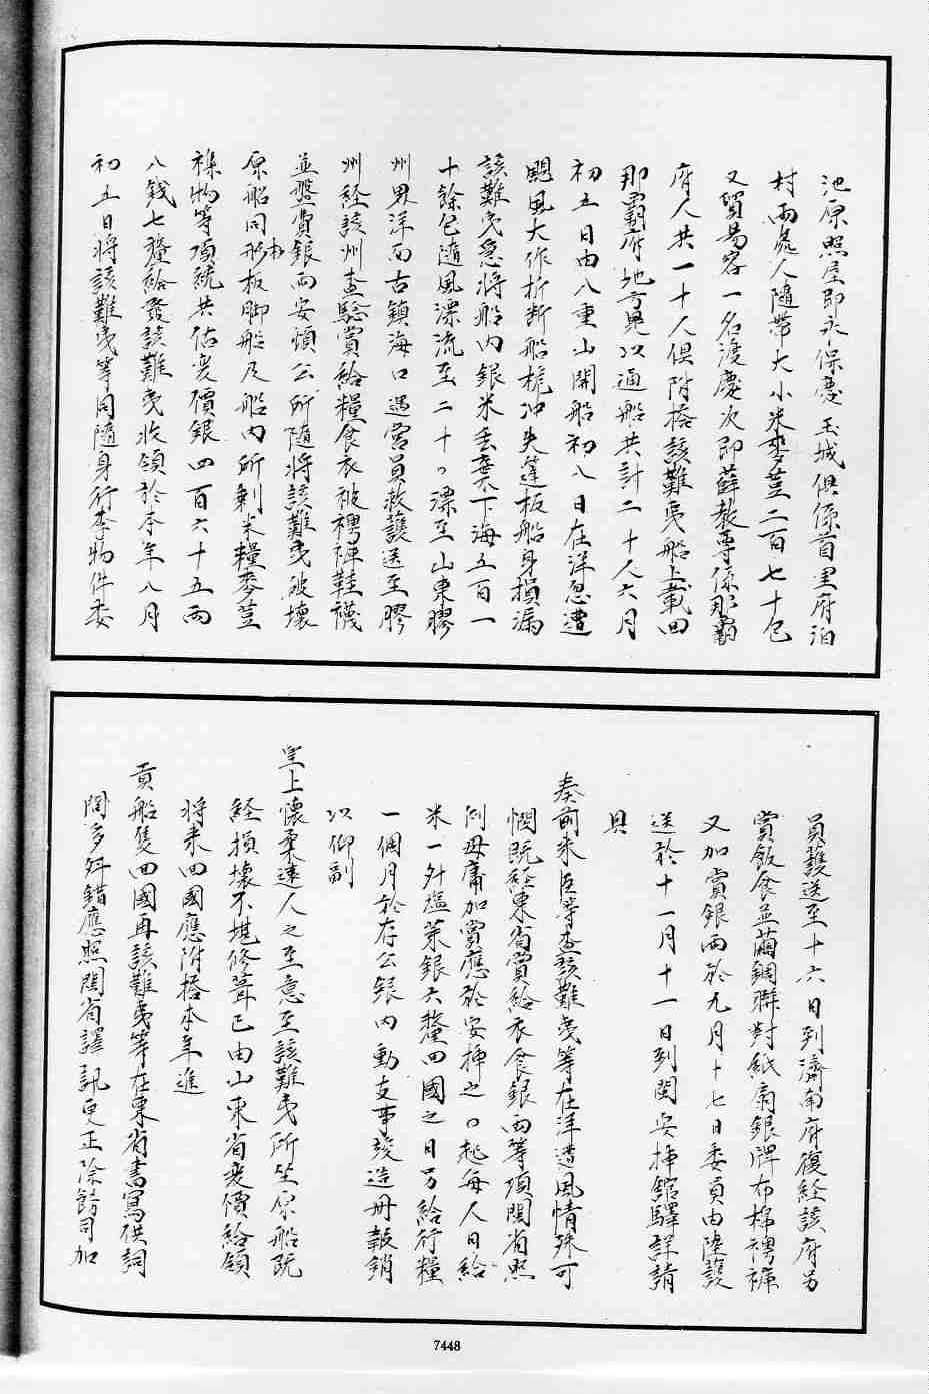 池原照屋即永保慶玉城俱係首里府泊
村兩處人隨帶大小米麥荳二百七十包
又貿易客一名渡慶次即薛教尊係那霸
府人共一十人俱附搭該難夷船上載回
那霸府地方是以通船共計二十人六月
初五日由八重山開船初八日在洋忽遭
颶風大作折斷船桅冲失蓬板船身損漏
該難夷急將船內銀米丟棄下海五百一
十餘包隨風漂流至二十日漂至山東膠
州界洋面古鎮海口遇官員救護送至膠
州經該州查驗賞給糧食衣被褥褲鞋襪
並盤費銀而安頓公所隨將該難夷破壞
原船同杉板脚船及船內所剩米糧麥荳
襍物等項統共估变價銀四百六十五兩
八錢七釐給發該難夷收領於本年八月
初五日將該難夷等同隨身行李物件委
員護送至十六日到濟南府復經該府另
賞飯食並繭綢聯對紙扇銀牌布棉褥褲
又加賞銀兩於九月十七日委員由陸護
送於十一月十一日到閩安揷館驛詳請
具
奏前來臣等查該難夷等在洋遭風情殊可
憫既經東省賞給衣食銀兩等項閩省照
例毋庸加賞應於安揷之日起每人日給
米一升塩菜銀六釐回國之日另給行糧
一個月於存公銀內動支事竣造册報銷
以仰副
皇上懷柔遠人之至意至該難夷所坐原船既
經損壞不堪修葺已由山東省变價給領
將来回國應附搭本年進
貢船隻回國再該難夷等在東省書寫供詞
間多舛錯應照閩省譯訊更正除飭司加
7448